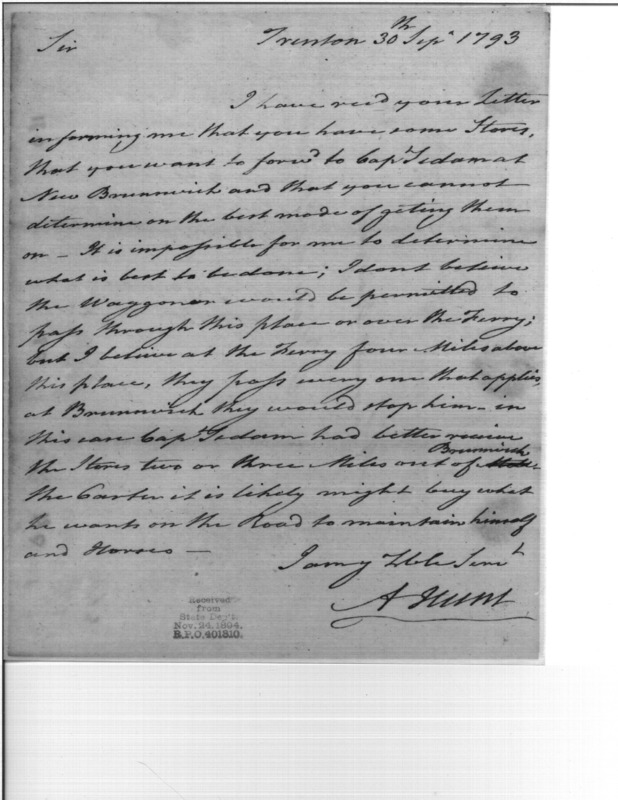 Trenton 30th Sepr 1793
Sir
I have recd your Letter
informing me that you have some Stores,
that you want to forwd to Capt Tedam at
New Brunswick and that you cannot
determine on the best mode of geting them
on - It is impossible for me to determine
what is best to be done; I dont believe
the Waggoner would be permitted to
pass through this place or over the Ferry;
but I believe at the Ferry four Miles above
this place, they pass every one that applies,
at Brunswick they would stop him - in
this case Capt Tedam had better receive
the Stores two or three Miles out of Brunswick
the Carter it is likely might buy what
he wants on the Road to maintain himself
and Horses -
I am yr Hble Servt
A Hunt
Received
from
State Dep't.
Nov. 24, 1894.
R.P.O. 401810.